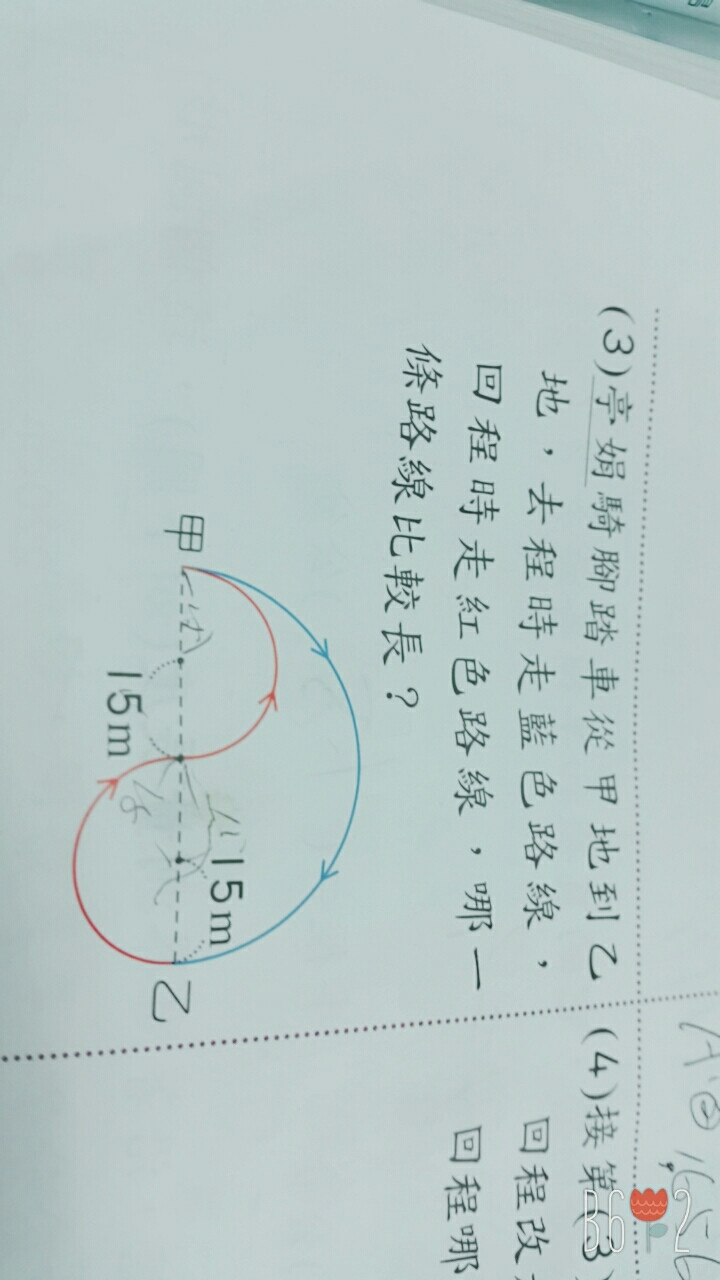 (3)亭娟騎腳踏車從甲地到乙
地，去程時走藍色路線，
回程時走紅色路線，哪一
條路線比較長？
甲
15m
15m
乙
(4)接第(3)
回程改
回程哪
B612